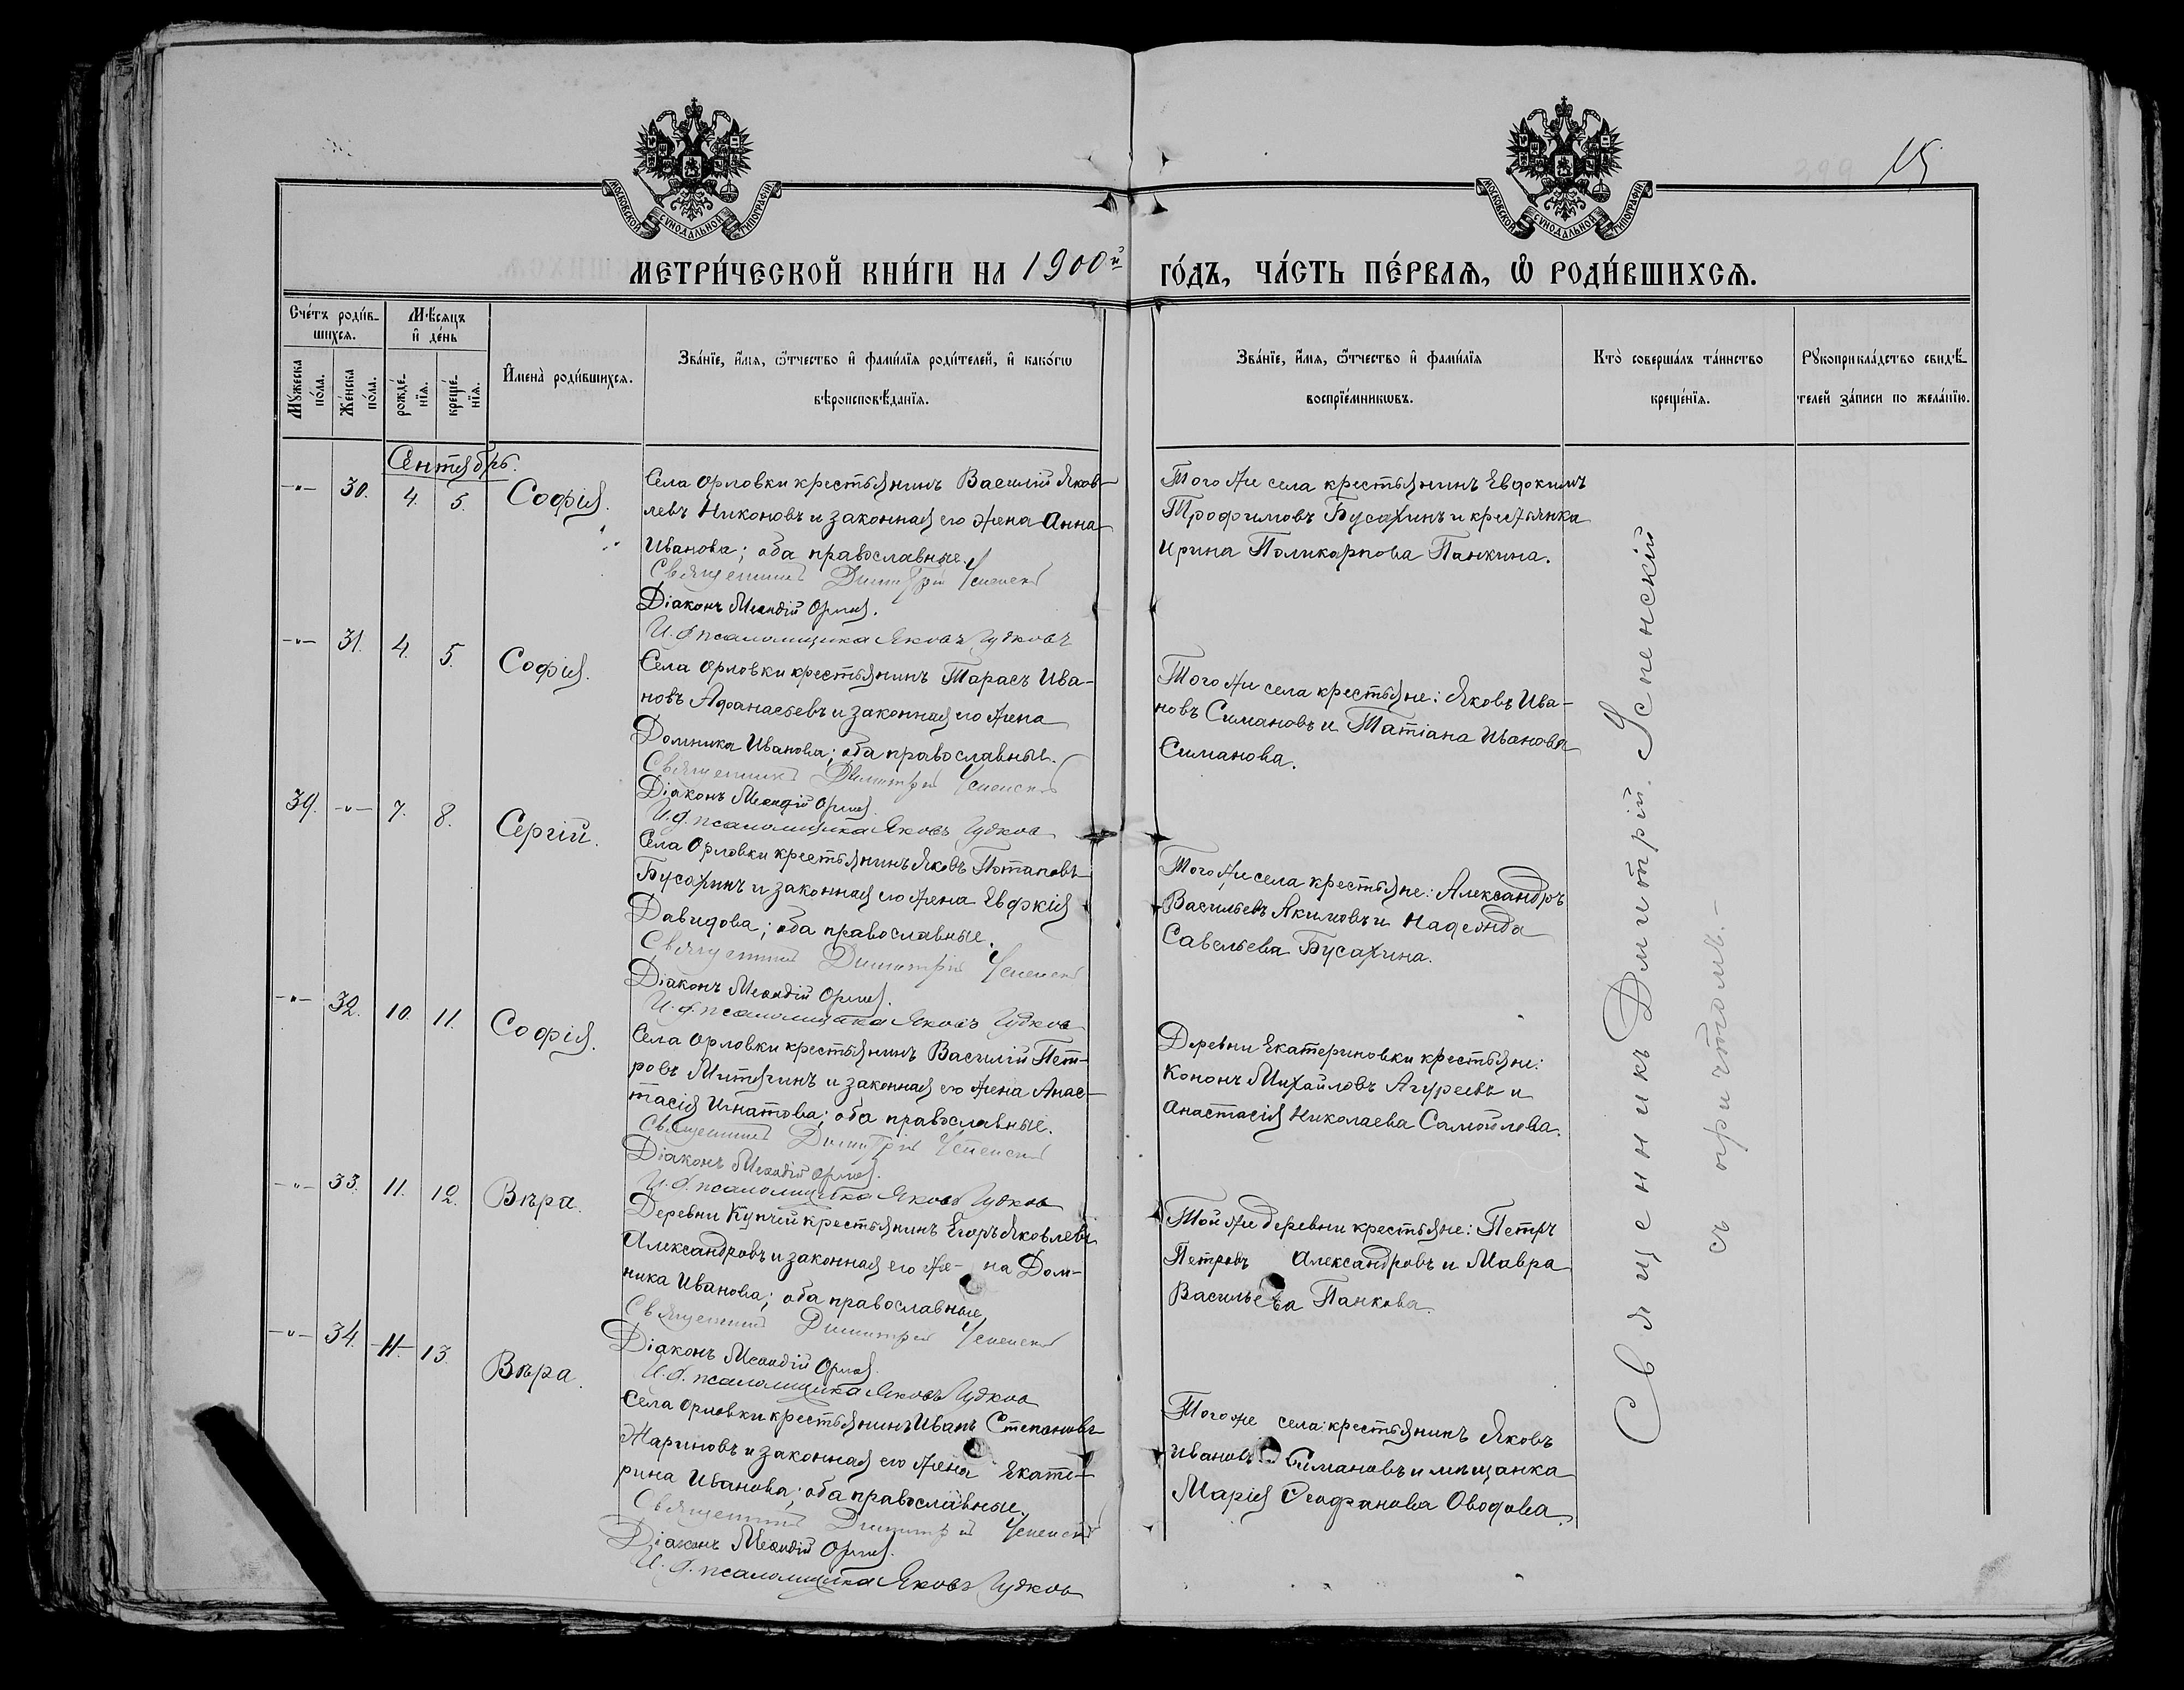 МОСКОВСКОЙ СѴНОДАЛЬНОЙ ТИПОГРАФІИ
МОСКОВСКОЙ СѴНОДАЛЬНОЙ ТИПОГРАФІИ
15
399
МЕТРИ́ЧЕСКОЙ КНИ́ГИ НА 1900й ГО́ДЪ, ЧА́СТЬ ПЕ́РВАѦ, Ѡ҆ РОДИ́ВШИХСѦ.
Сче́тъ роди́в-
шихся.
Мѣ́сяцъ
и҆ де́нь
Мꙋ́жеска
по́ла.
Же́нска
по́ла.
рожде́-
нїя.
креще́-
нїя.
И҆мена̀ роди́вшихся.
Зва́нїе, и҆́мя, ѻ҆́тчество и҆ фами́лїя роди́телей, и҆ како́гѡ
вѣроисповѣ́данїя.
Зва́нїе, и҆́мя, ѻ҆́тчество и҆ фами́лїя
воспрїе́мникѡвъ.
Кто̀ соверша́лъ та́инство
креще́нїя.
Рꙋкоприкла́дство свидѣ́-
телей за́писи по жела́нїю.
Сентябрь.
-"- 30. 4. 5. Софія.
Села Орловки крестьянинъ Василій Яков-
левъ Никоновъ и законная его жена Анна
Иванова; оба православные.
Священникъ Димитрій Успенскій
Діаконъ
И. д. псаломщика Яковъ Гудковъ
Того же села крестьянинъ Евдокимъ
Трофимовъ Бусахинъ и крестьянка
Ирина Поликарпова Панкина.
-"- 31. 4. 5. Софія.
Села Орловки крестьянинъ Тарасъ Ива-
новъ Афанасьевъ и законная его жена
Домника Иванова; оба православные.
Священникъ Димитрій Успенскій
Діаконъ
И. д. псаломщика Яковъ Гудковъ
Того же села крестьяне: Яковъ Ива-
новъ Симановъ и Татіана Иванова
Симанова.
39. -"- 7. 8. Сергій.
Села Орловки крестьянинъ Яковъ Потаповъ
Бусахинъ и законная его жена Евфкія
Давидова; оба православные.
Священникъ Димитрій Успенскій
Діаконъ
И. д. псаломщика Яковъ Гудковъ
Того же села крестьяне: Александръ
Васильевъ Акимовъ и Надежда
Савельева Бусахина.
-"- 32. 10. 11. Софія.
Села Орловки крестьянинъ Василій Пет-
ровъ Митягинъ и законная его жена Анас-
тасія Игнатова; оба православные.
Священникъ Димитрій Успенскій
Діаконъ
И. д. псаломщика Яковъ Гудковъ
Деревни Екатериновки крестьяне:
Кононъ Михайловъ Агуреевъ и
Анастасія Николаева Самойлова.
-"- 33. 11. 12. Вѣра.
Деревни Купчей крестьянинъ Егоръ Яковлевъ
Александровъ и законная его же- на Дом-
ника Иванова; оба православные.
Священникъ Димитрій Успенскій
Діаконъ
И. д. псаломщика Яковъ Гудковъ
Той же деревни крестьяне: Петръ
Петровъ Александровъ и Мавра
Васильева Панкова.
-"- 34. 11. 13. Вѣра.
Села Орловки крестьянинъ Иванъ Степановъ
Жариновъ и законная его жена Екате-
рина Иванова; оба православные.
Священникъ Димитрій Успенскій
Діаконъ
И. д. псаломщика Яковъ Гудковъ
Того же села: крестьянинъ Яковъ
Ивановъ Симановъ и мѣщанка
Марія Феофанова Оводова.
Священникъ Димитрій Успенскій
съ причтомъ.-